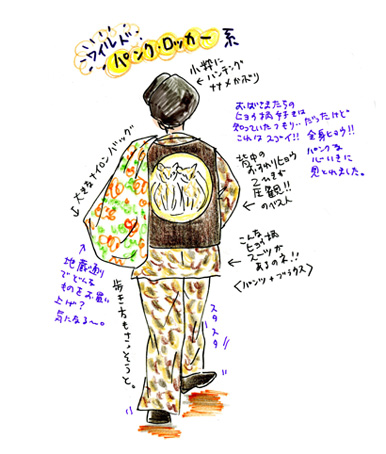 ワイルド
パンク・ロッカー系
小粋に
ハンチング
ナナメかぶり
おばさまたちの
ヒョウ柄好きは
知っていたつもり・・だったけど
これはスゴイ!!
全身ヒョウ!!
パンクな
心いきに
見とれました。
←大きなナイロンバッグ
背中の
おすわりヒョウ
2ひきが
圧観!!
のベスト
こんな
ヒョウ柄
スーツが
あるのネ!!
<パンツ+ブラウス>
地蔵通り
でどんな
ものをお買い
上げ?
気になる〜。
歩き方もさっそうと。
スタ
スタ